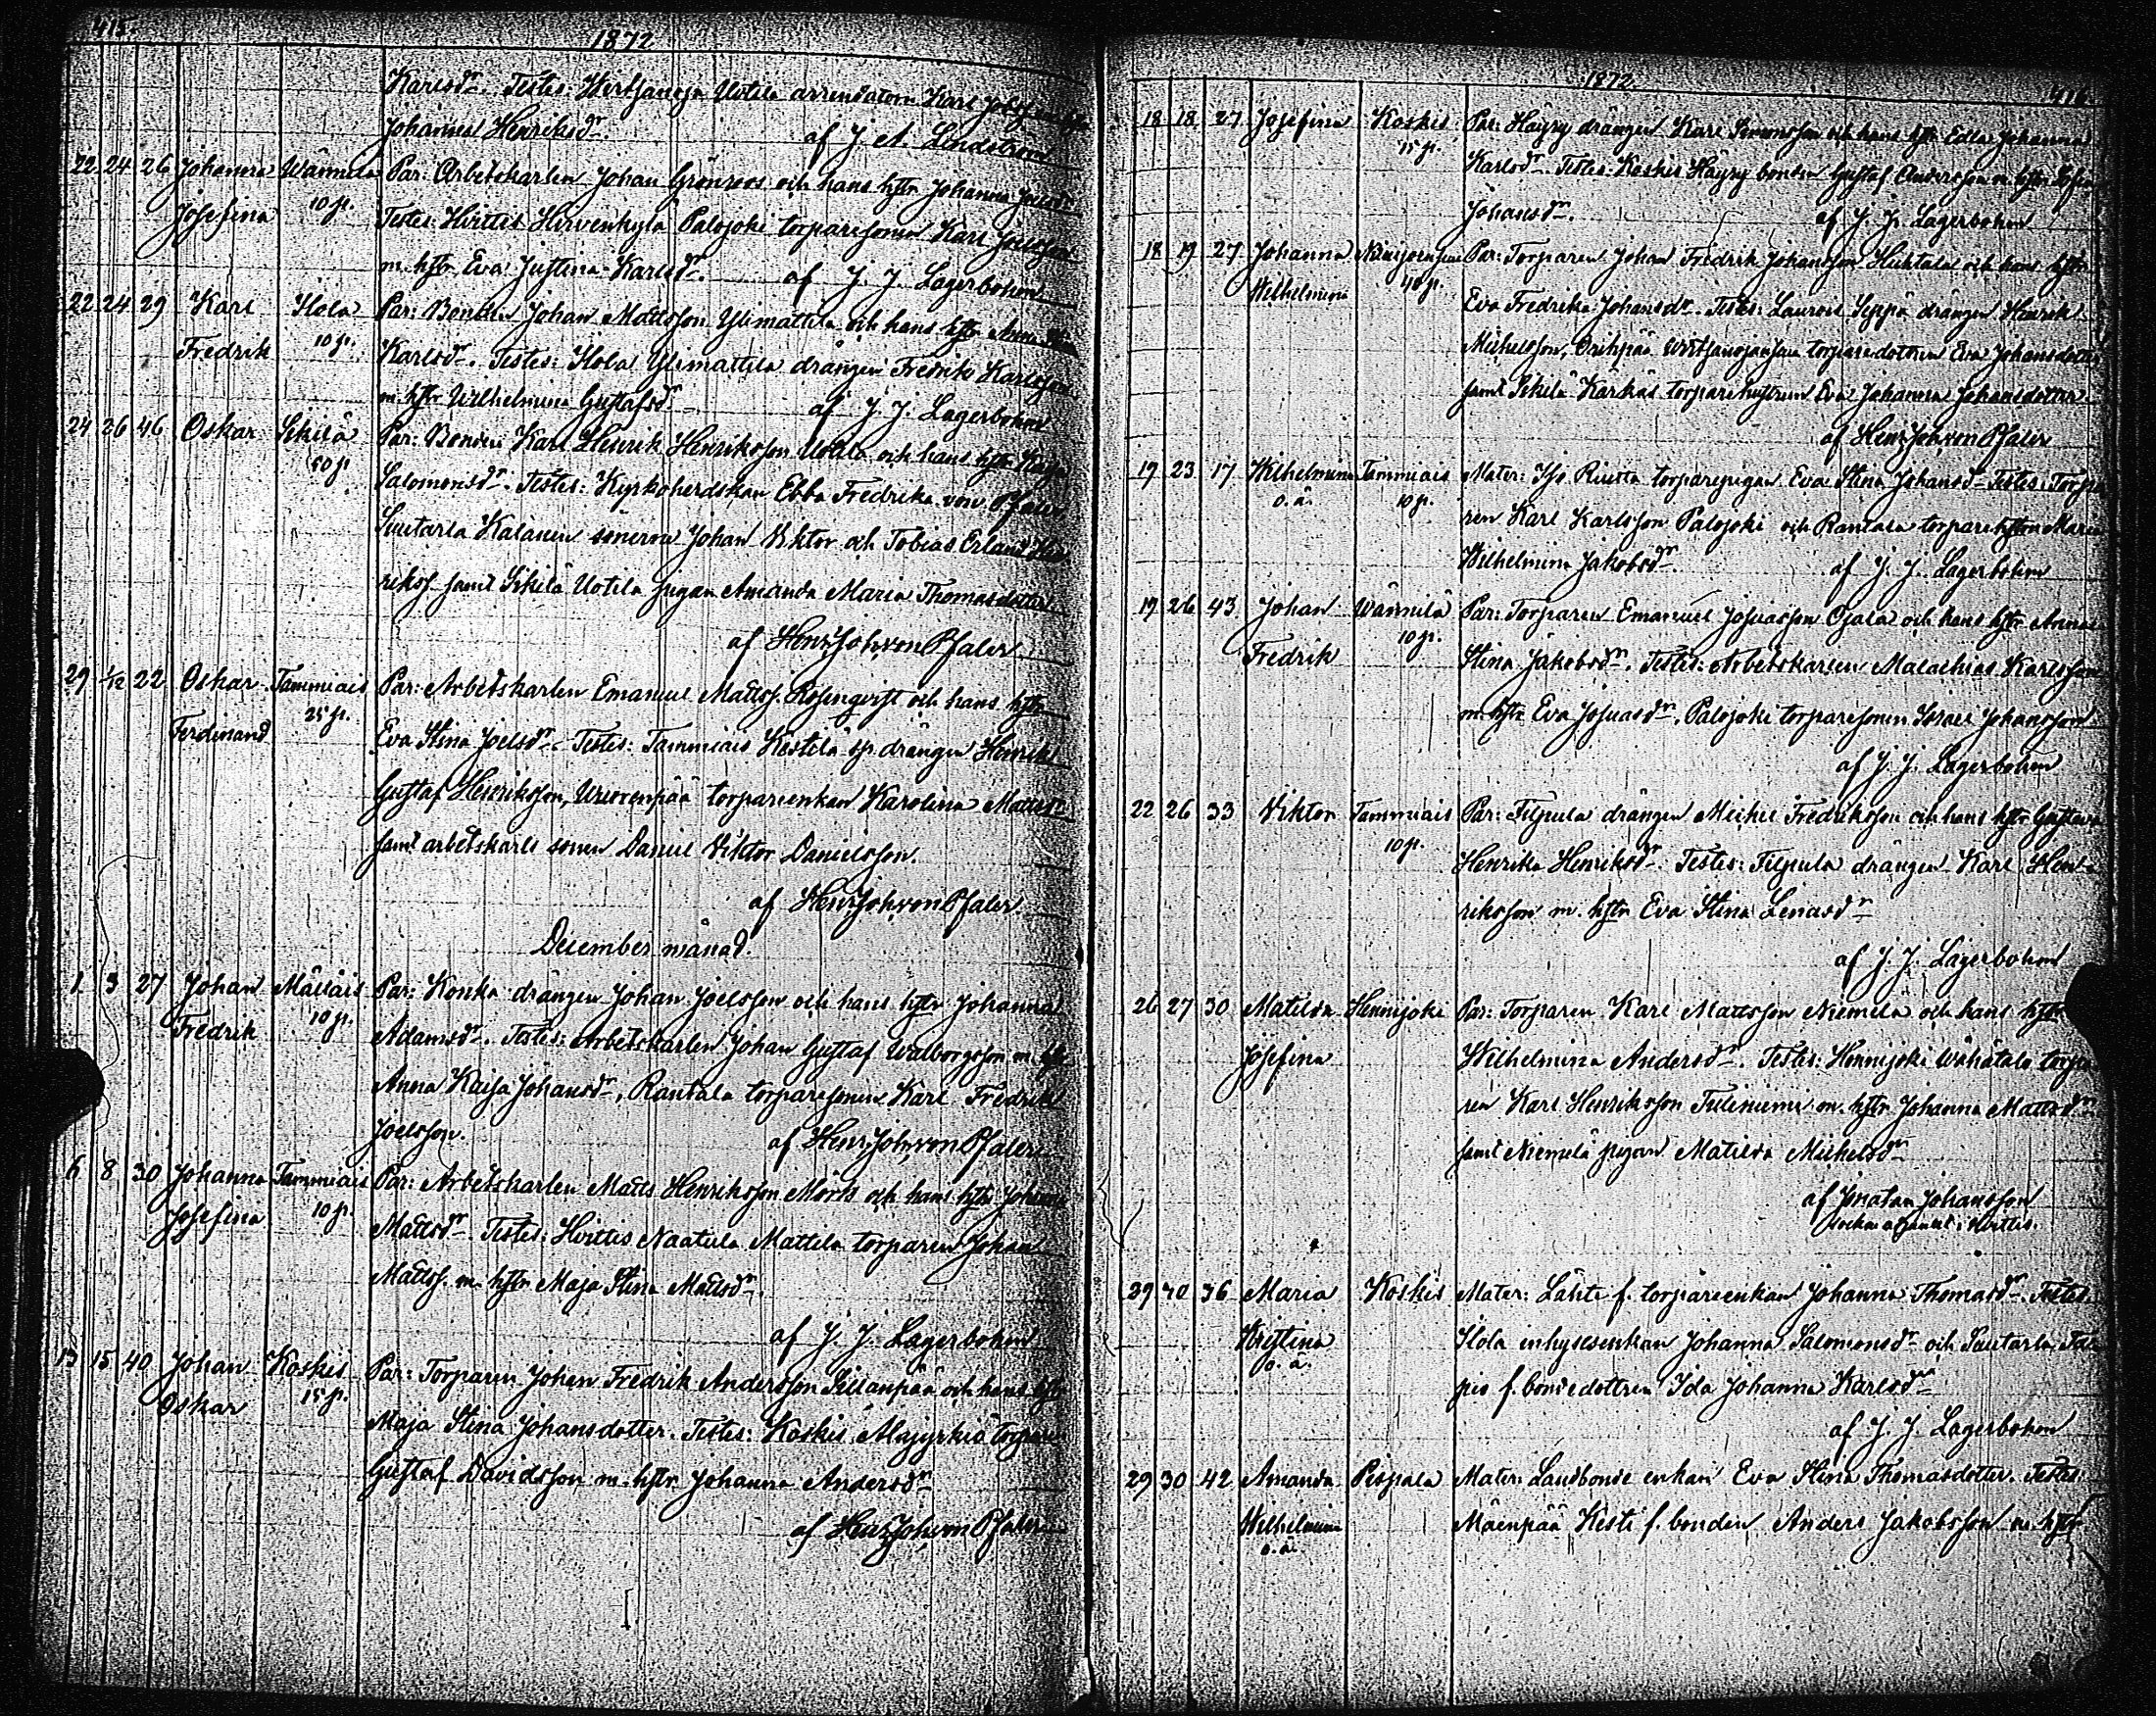 415.
1872
Karlsdr. Testes: Wirtsanoja Uotila arrendatorn Karl
Johanna Henriksdr. af J. A. Lindström
22 24 26 Johanna Wännilä Par: Arbetskarlen Johan Grönroos och hans hstr Johanna
Josefina 10 p. Testes: Hvittis Hirvenkylä Palojoki torparesonen Karl
m. hstr Eva Justina Karlsdr. af J. J. Lagerbohm
22 24 29 Karl Ilola Par: Bonden Johan Mattsson Ylimattila och hans hstr Anna
Fredrik 10 p. Karlsdr. Testes: Ilola Ylimattila drängen Fredrik Karlsson
m. hstr Wilhelmina Gustafsdr. af J. J. Lagerbohm
24 26 46 Oskar Sikilä Par: Bonden Karl Henrik Henriksson Uotila och hans hstr Kaja
p. Salomonsdr. Testes: Kyrkoherdskan Ebba Fredrika von Pfaler
Suutarla Kalanen sönerna Johan Viktor och Tobias Erland Hen
rikss. samt Sikilä Uotila pigan Amanda Maria Thomasdotter
af Henr. Joh. von Pfaler
29 1/12 22 Oskar Tammiais Par: Arbetskarlen Emanuel Mattss. Rosenqvist och hans hstr
Ferdinand 25 p. Eva Stina Joelsdr. Testes: Tammiais Kestilä sp. drängen Henrik
Gustaf Henriksson, torpareenkan Karolina Mattsdr
samt arbetskarls sonen Daniel Viktor Danielsson.
af Henr. Joh. von Pfaler.
December månad.
1 3 27 Johan Mäiäis Par: Konka drängen Johan Joelsson och hans hstr Johanna
Fredrik 10 p. Adamsdr. Testes: Arbetskarlen Johan Gustaf Walborgsson m. hstr
Anna Kaisa Johansdr, Rantala torparesonen Karl Fredrik
Joelsson. af Henr. Joh. von Pfaler
6 8 30 Johanna Tammiais Par: Arbetskarlen Matts Henriksson Mörk och hans hstr Johanna
Josefina 10 p. Mattsdr. Testes: Hvittis Naatula Mattila torparen Johan
Mattss. m. hstr Maja Stina Mattsdr.
af J. J. Lagerbohm
13 15 40 Johan Koskis Par: Torparen Johan Fredrik Andersson Sillanpää och hans hstr
Oskar 15 p. Maja Stina Johansdotter. Testes: Koskis torparen
Gustaf Davidsson m. hstr Johanna Andersdr
af Henr. Joh. von Pfaler
1872. 416
18 18 27 Josefina Koskis Par: Häyry drängen Karl Simonsson och hans hstr Edla Johanna
15 p. Karlsdr. Testes: Koskis Häyry bonden Gustaf Andersson m. hstr
Johansdr. af J. J. Lagerbohm
18 19 27 Johanna Par: Torparen Johan Fredrik Johansson Huhtala och hans hstr
Wilhelmina 40 p. Eva Fredrika Johansdr. Testes: Lauroi Seppä drängen Henrik
Michelsson, torparedottren Eva Johansdotter
samt Sikilä Karhas torparehustrun Eva Johanna Johansdotter
af Henr. Joh. von Pfaler
19 23 17 Wilhelmina Tammiais Mater: torparepigan Eva Stina Johansdr Testes: Torpa
o. ä. 10 p. ren Karl Karlsson Palojoki och Rantala torpare hstrn Maria
Wilhelmina Jakobsdr. af J. J. Lagerbohm
19 26 43 Johan Wännilä Par: Torparen Emanuel Josuasson Ojala och hans hstr Anna
Fredrik 10 p. Stina Jakobsdr. Testes: Arbetskarlen Malachias Karlsson
m. hstr Eva Josuasdr, Palojoki torparesonen Israel Johansson
af J. J. Lagerbohm
22 26 33 Viktor Tammiais Par: Filpula drängen Michel Fredriksson och hans hstr Gustava
10 p. Henrika Henriksdr. Testes: Filpula drängen Karl Hen
riksson m. hstr Eva Stina Lenasdr
af J. J. Lagerbohm
26 27 30 Matilda Hennijoki Par: Torparen Karl Mattsson Niemelä och hans hstr
Josefina Wilhelmina Andersdr. Testes: Hennijoki Wähätalo torpa
ren Karl Henriksson Tuliniemi m. hstr Johanna Mattsdr
samt Niemelä pigan Matilda Michelsdr
af Jonatan Johansson
i Hvittis.
29 30 36 Maria Koskis Mater: Lähti f. torpareenkan Johanna Thomasdr. Testes:
Kristina Ilola inhysesenkan Johanna Salomonsdr och Suutarla
o. ä. pio f. bondedottren Ida Johanna Karlsdr
af J. J. Lagerbohm
29 30 42 Amanda Peipala Mater: Landbonde enkan Eva Stina Thomasdotter. Testes:
Wilhelmina Mäenpää Kesti f. bonden Anders Jakobsson m. hstr
o. ä.